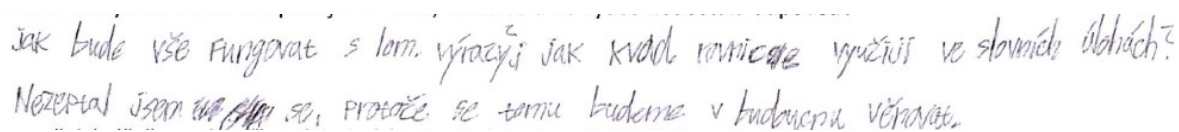 jak bude vše fungovat s lom. výrazy?; jak kvad. rovnice využiji ve slovních úlohách?
Nezeptal jsem se, protože se tomu budeme v budoucnu věnovat.